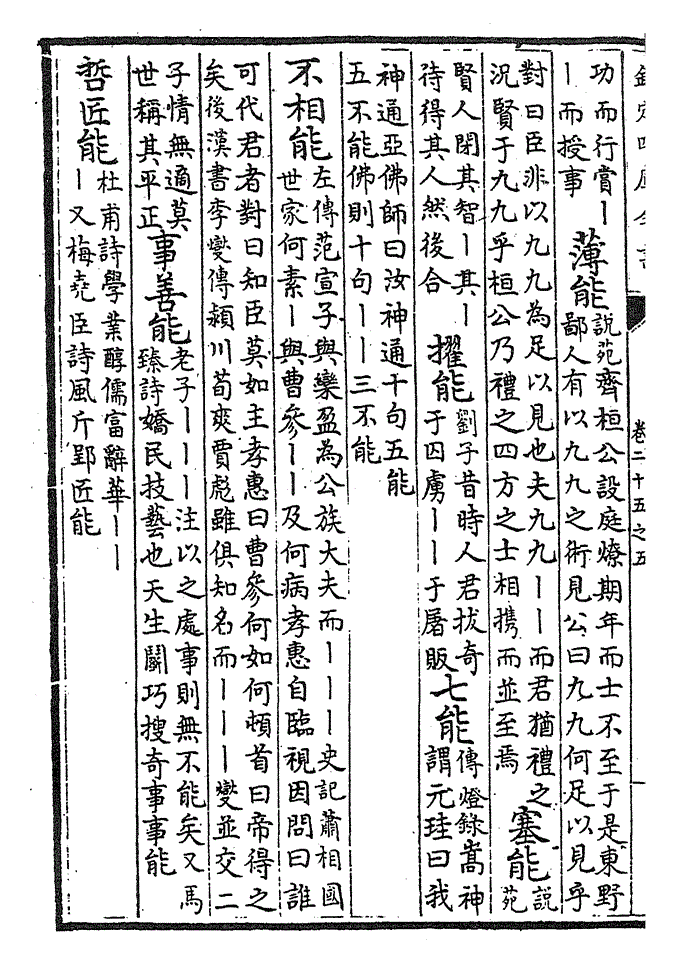 欽定四庫全書
卷二十五之五
功而行賞｜
｜而授事
薄能
說苑齊桓公設庭燎期年而士不至于是東野
鄙人有以九九之術見公曰九九何足以見乎
對曰臣非以九九為足以見也夫九九｜｜而君猶禮之
況賢于九九乎桓公乃禮之四方之士相携而並至焉
塞能
說
苑
賢人閉其智｜其｜
待得其人然後合
擢能
劉子昔時人君拔奇
于囚虜｜｜于屠販
七能
傳燈錄嵩神
謂元珪曰我
神通亞佛師曰汝神通十句五能
五不能佛則十句｜｜三不能
不相能
左傳范宣子與欒盈為公族大夫而｜｜｜史記蕭相國
世家何素｜與曹參｜｜及何病孝惠自臨視因問曰誰
可代君者對曰知臣莫如主孝惠曰曹參何如何頓首曰帝得之
矣後漢書李燮傳潁川荀爽賈彪雖俱知名而｜｜｜燮並交二
子情無適莫
世稱其平正
事善能
老子｜｜｜注以之處事則無不能矣又馬
臻詩嬌民技藝也天生鬭巧搜奇事事能
哲匠能
杜甫詩學業醇儒富辭華｜｜
｜又梅堯臣詩風斤郢匠能